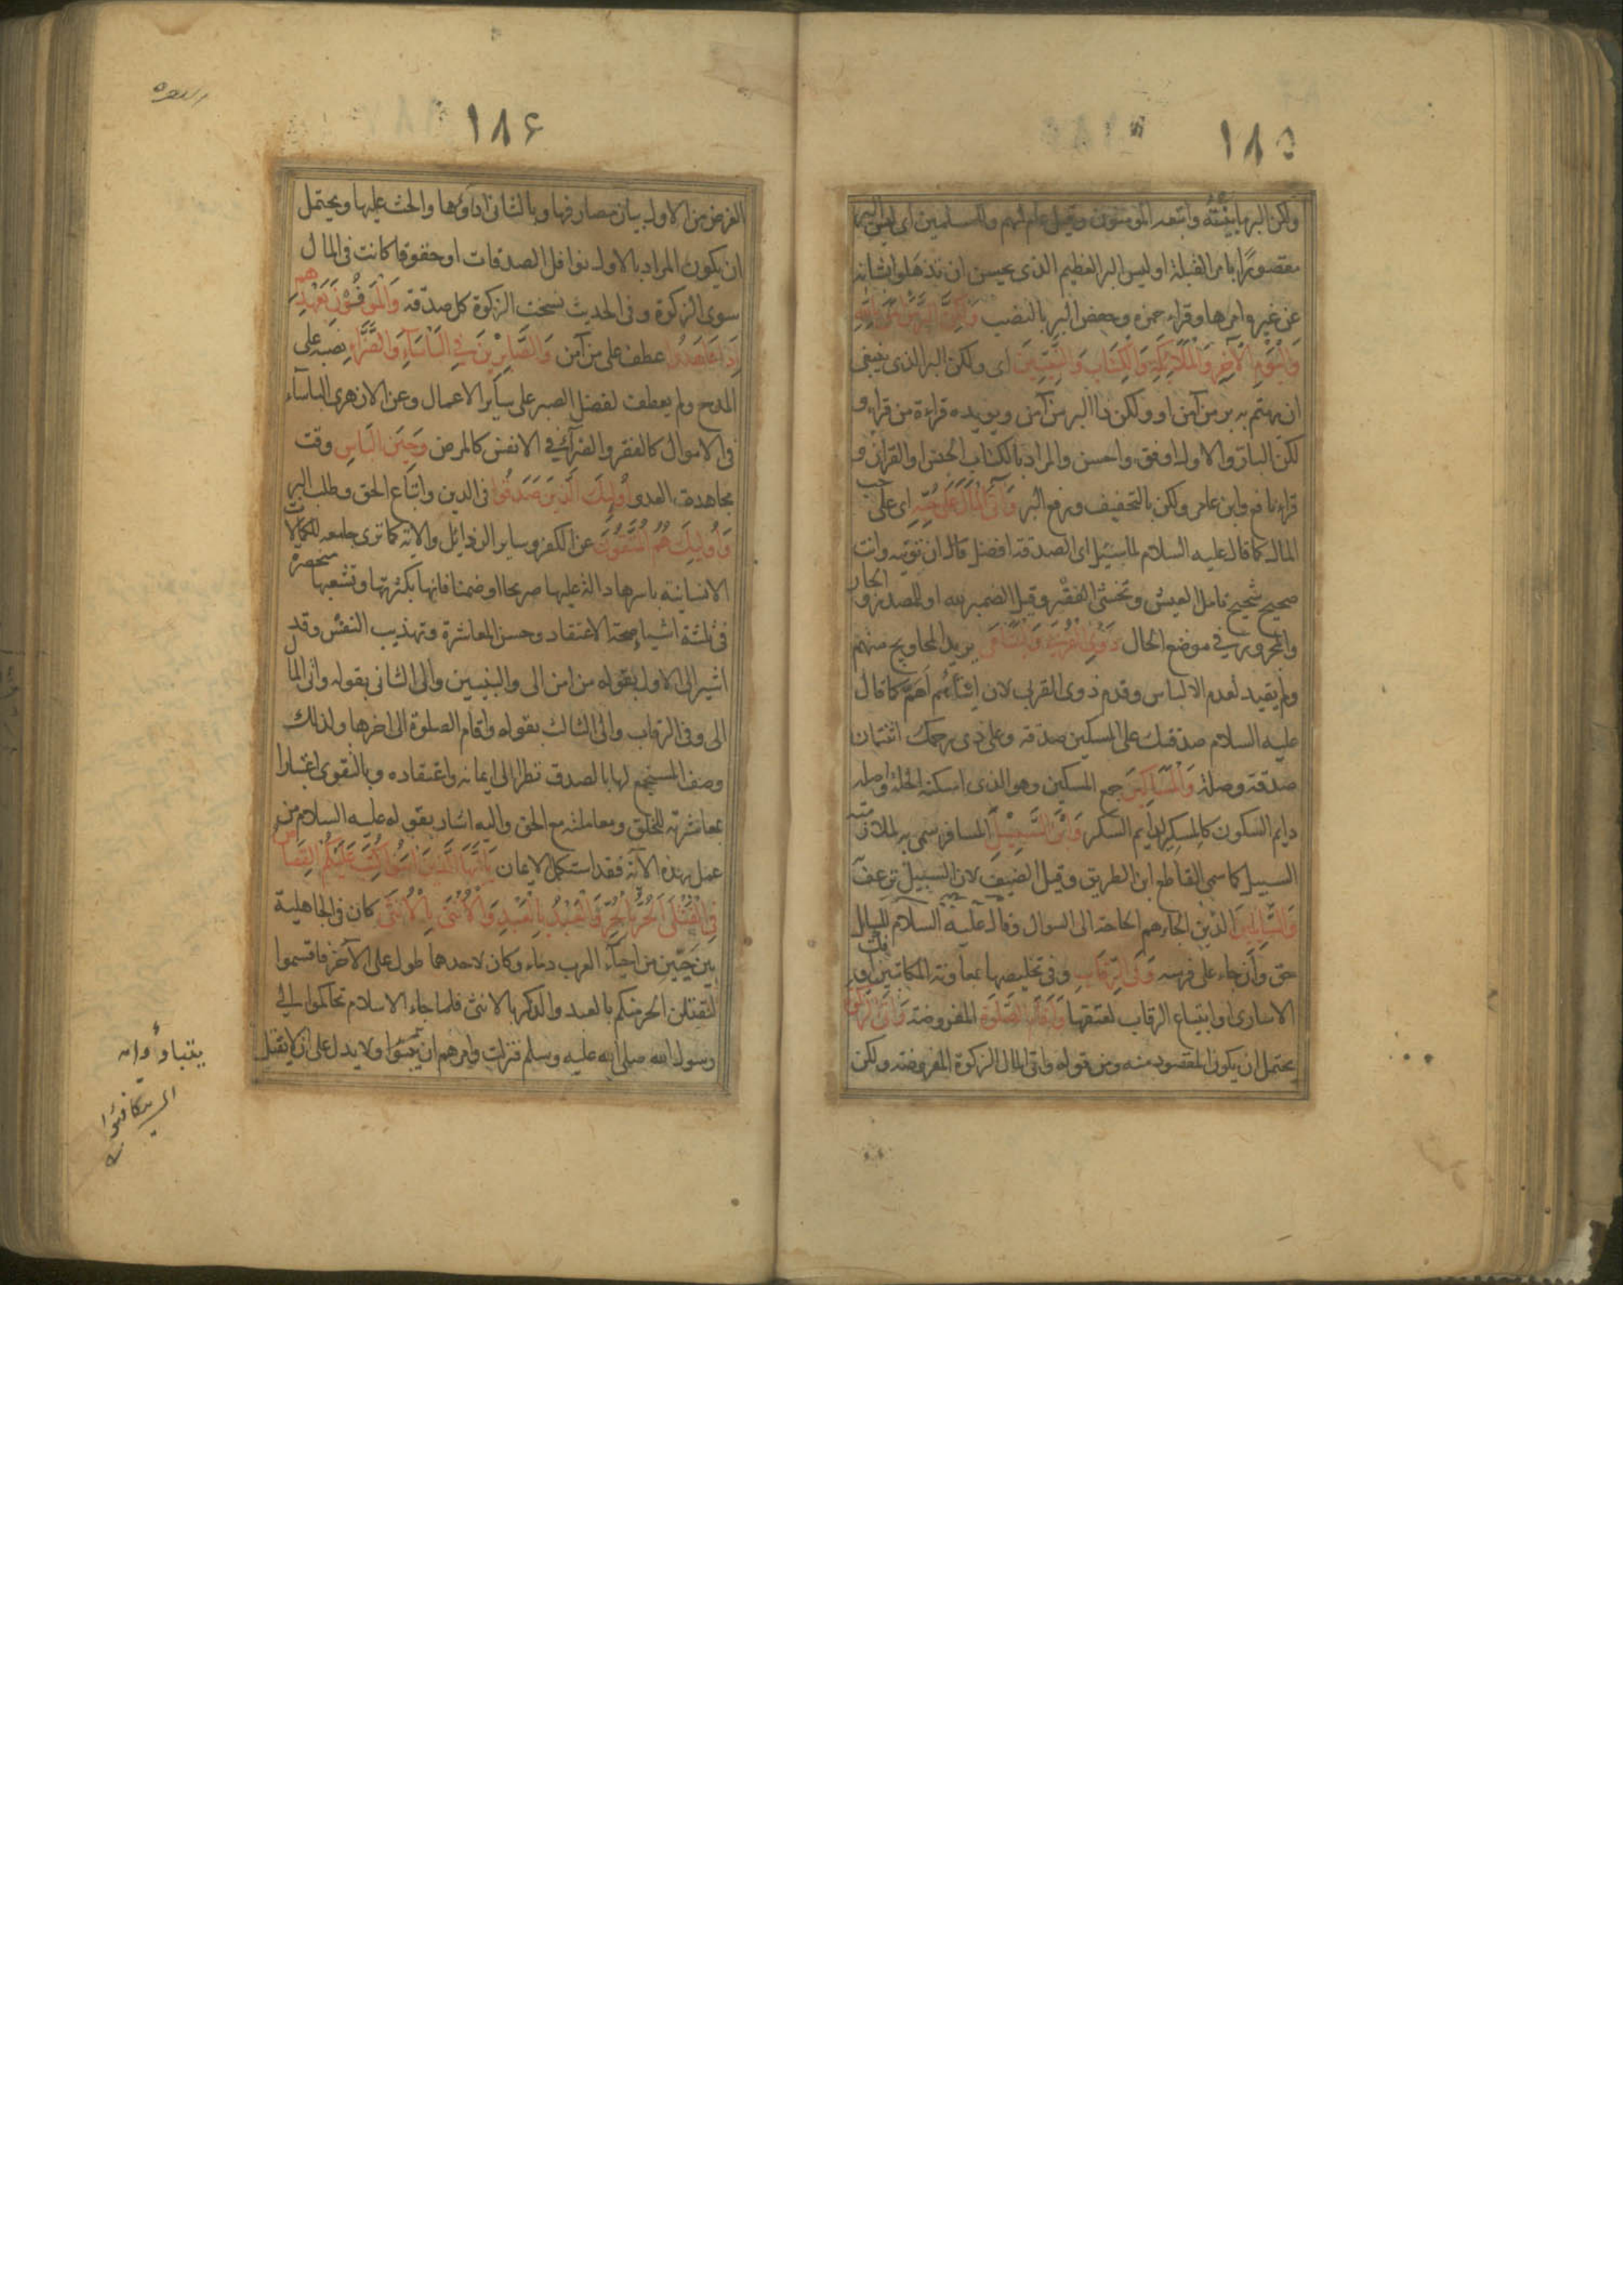 ١٨٥
ولكن البر ما بينته واتبعه المؤمنون وقيل عام لهم وللمسلمين اى ليس البر
مقصورا بامر القبلة او ليس البر العظيم الذى يحسن ان تذهلوا بشانه
عن غيره امرها وقراء حمزه وحفص البر بالنصب وَلٰكِنَّ الْبِرَّ مَنْ اٰمَنَ بِاللّٰهِ
وَالْيَوْمِ الْاٰخِرِ وَالْمَلَائِكَةِ وَالْكِتَابِ وَالنَّبِيّينَ اى ولكن البر الذى ينبغى
ان يهتم به بر من آمن او ولكن ذا البر من آمن ويويده قراءة من قراء و
لكن البار والاول اوفق واحسن والمراد بالكتاب الجنس او القران و
قراء نافع وابن عامر ولكن بالتخفيف ورفع البر وَاٰتَى الْمَالَ عَلٰى حُبِّهِ اى على حب
المال كما قال عليه السلام لما سئيل اى الصدقة افضل قال ان تؤتيه وانت
صحيح شحيح تامل العيش وتخشى الفقر وقيل الضمير لله او للمصدر و الجار
والمجرور فى موضع الحال ذَوِى الْقُرْبٰى وَالْيَتَامٰى يريد المحاويج منهم
ولم يقيد لعدم الالباس وقدم ذوى القربى لان ايتاءهم اهم كما قال
عليه السلام صدقتك على المسكين صدقة وعلى ذى رحمك اثنتان
صدقة وصلة وَالْمَسَاكِينَ جمع المسكين وهو الذى اسكنه الخلة واصله
دايم السكون كالمسكير لدايم السكر وَابْنَ السَّبِيْلِ المسافر سمى به لملازمته
السبيل كما سمى القاطع ابن الطريق وقيل الضيف لان السبيل ترعف
وَالسَّائِلِينَ الذين الجاءهم الحاجة الى السوال وقال عليه السلام للسايل
حق وان جاء على فرسه وَفِى الرِّقَابِ وفى تخليصها بمعاونة المكاتبين او فك
الاسارى او ابتياع الرقاب لعتقها وَاَقَامَ الصَّلٰوةَ المفروضة وَاٰتَى الزَّكٰوةَ
يحتمل ان يكون المقصود منه ومن قوله واتى المال الزكوة المفروضة ولكن
١٨۶
الغرض من الاول بيان مصارفها وبالثانى اداؤها والحث عليها ويحتمل
ان يكون المراد بالاول نوافل الصدقات او حقوقا كانت فى المال
سوى الزكوة وفى الحديث نسخت الزكوة كل صدقة وَالْمُوفُوْنَ بِعَهْدِهِمْ
اِذَا عَاهَدُوا عطف على من آمن وَالصَّابِرِيْنَ فِى الْبَأْسَاءِ وَالضَّرَّاءِ نصبه على
المدح ولم يعطف لفضل الصبر على ساير الاعمال وعن الازهرى الباساء
فى الاموال كالفقر والضراء فى الانفس كالمرض وَحِيْنَ الْبَأْسِ وقت
مجاهدة العدو اُولٰئِكَ الَّذِينَ صَدَقُوا فى الدين واتباع الحق وطلب البر
وَاُولٰئِكَ هُمُ الْمُتَّقُونَ عن الكفر وساير الرذايل والاية كما ترى جامعه للكمالات
الانسانية باسرها دالة عليها صريحا او ضمنا فانها بكثرتها وتشعبها منحصرة
فى ثلثة اشياء صحة الاعتقاد وحسن المعاشرة وتهذيب النفس وقد
اشير الى الاول بقوله من امن الى والنبيين والى الثانى بقوله واتى المال
الى وفى الرقاب والى الثالث بقوله واقام الصلوة الى اخرها ولذلك
وصف المستجمع لها بالصدق نظرا الى ايمانه واعتقاده وبالتقوى اعتبارا
بمعاشرته للخلق ومعاملته مع الحق واليه اشار بقوله عليه السلام من
عمل بهذه الآية فقد استكمل الايمان يَا اَيُّهَا الَّذِينَ اٰمَنُوا كُتِبَ عَلَيْكُمُ الْقِصَاصُ
فِى الْقَتْلٰى اَلْحُرُّ بِالْحُرِّ وَالْعَبْدُ بِالْعَبْدِ وَالْاُنْثٰى بِالْاُنْثٰى كان فى الجاهلية
بين حيين من احياء العرب دماء وكان لاحدهما طول على الآخر فاقسموا
لنقتلن الحر منكم بالعبد والذكر بالانثى فلما جاء الاسلام تحاكموا الى
رسول الله صلى الله عليه وسلم فنزلت وامرهم ان يتبؤا ولا يدل على ان لا يقتل